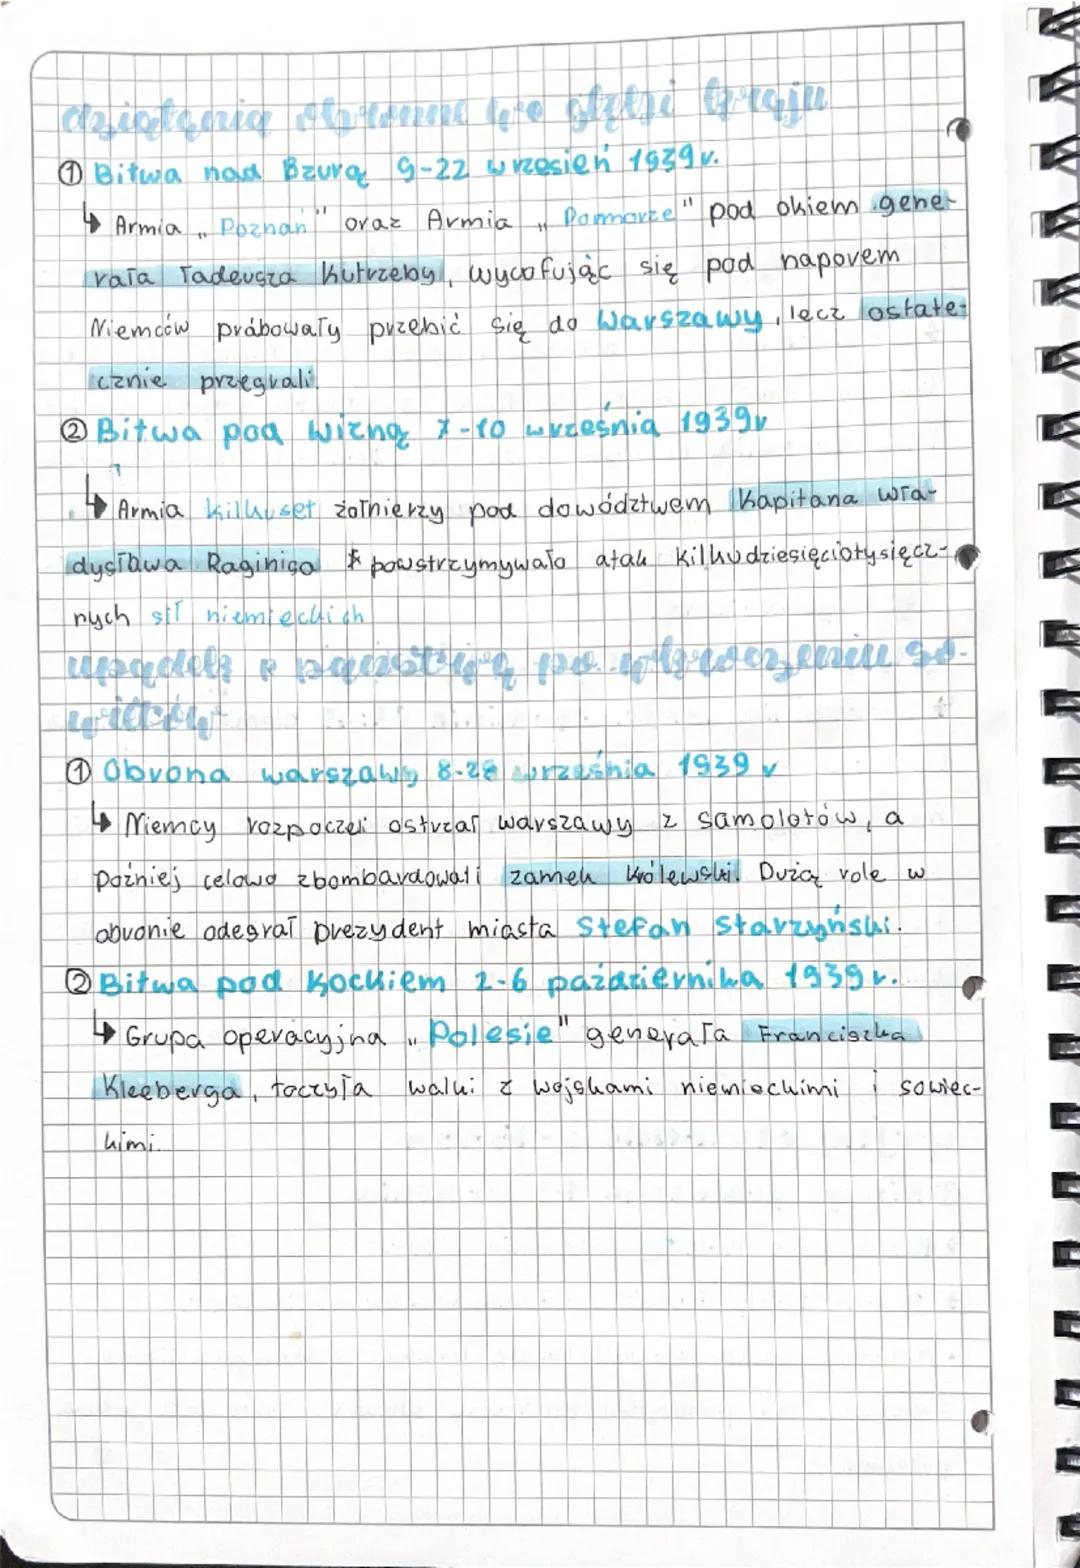 działania obronne we głębi kraju
① Bitwa nad Bzurą 9-22 wrzesień 1939 r.
↳ Armia „Poznań" oraz Armia „Pomorze" pod okiem gene-
rała Tadeusza Kutrzeby, wycofując się pod naporem
Niemców próbowały przebić się do Warszawy, lecz ostate-
cznie przegrali.
② Bitwa pod Wizną 7-10 września 1939r
↳ Armia kilkuset żołnierzy pod dowództwem Kapitana Wła-
dysława Raginisa * powstrzymywało atak kilkudziesięciotysięcz-
nych sił niemieckich
upadek państwa po wkroczeniu so-
wietów
① Obrona warszawy 8-28 września 1939 r
↳ Niemcy rozpoczeli ostrzał warszawy z samolotów, a
Poźniej celowo zbombardowali zamek Królewski. Dużą role w
obronie odegrał prezydent miasta Stefan Starzyński.
② Bitwa pod Kockiem 2-6 października 1939 r.
↳ Grupa operacyjna „Polesie" generała Franciszka
Kleeberga, toczyła walki z wojskami niemieckimi i sowiec-
kimi.